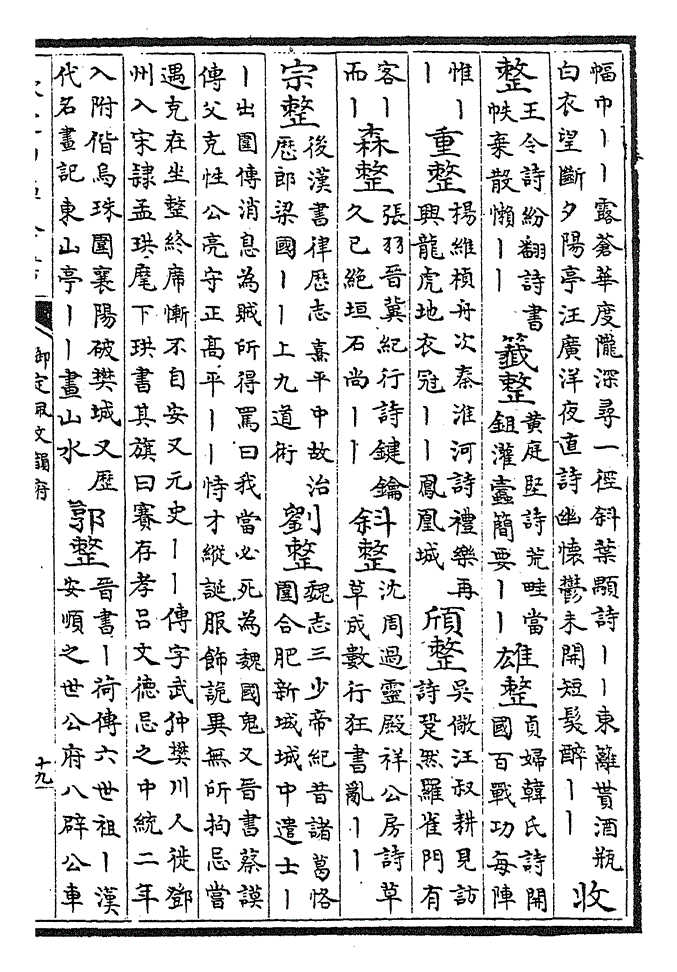 幅巾丨丨露蒼華度隴深尋一徑斜葉顒詩丨丨東籬貰酒瓶
白衣望斷夕陽亭汪廣洋夜直詩幽懷鬱未開短髮醉丨丨
收
整
王令詩紛翻詩書
帙棄散懶丨丨
籤整
黃庭堅詩荒畦當
鉏灌蠹簡要丨丨
雄整
貞婦韓氏詩開
國百戰功每陣
惟丨
丨
重整
楊維楨舟次秦淮河詩禮樂再
興龍虎地衣冠丨丨鳳凰城
頎整
吳儆汪叔耕見訪
詩跫然羅雀門有
客丨
而丨
森整
張羽晉冀紀行詩鍵鑰
久已絕垣石尚丨丨
斜整
沈周過靈殿祥公房詩草
草成數行狂書亂丨丨
宗整
後漢書律歷志熹平中故治
歷郎梁國丨丨上九道術
劉整
魏志三少帝紀昔諸葛恪
圍合肥新城城中遣士丨
丨出圍傳消息為賊所得罵曰我當必死為魏國鬼又晉書蔡謨
傳父克性公亮守正高平丨丨恃才縱誕服飾詭異無所拘忌當
遇克在坐整終席慚不自安又元史丨丨傳字武仲樊川人徙鄧
州入宋隸孟珙麾下珙書其旗曰賽存孝呂文德忌之中統二年
入附偕烏珠圍襄陽破樊城又歷
代名畫記東山亭丨丨畫山水
郭整
晉書丨荷傳六世祖丨漢
安順之世公府八辟公車
御定佩文韻府
十九